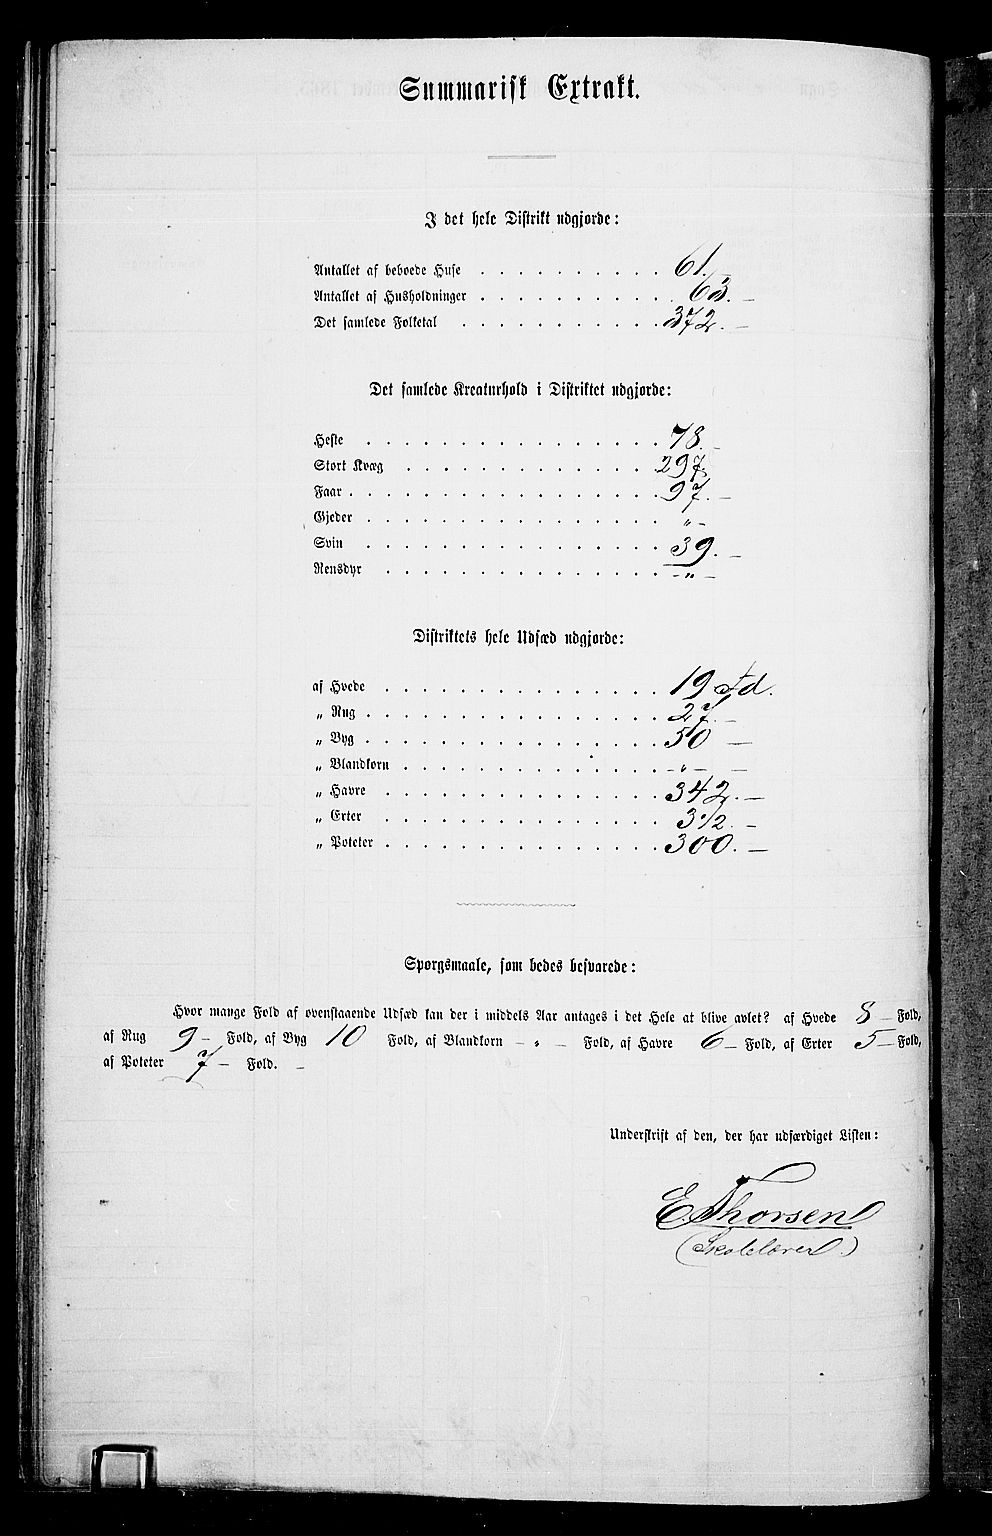 Summarisk Extrakt.
I det hele Distrikt udgjorde:
Antallet af beboede Huse . . . . . . . . . . 61. –
Antallet af Husholdninger . . . . . . . . . . 63. –
Det samlede Folketal . . . . . . . . . . . 372. –
Det samlede Kreaturhold i Distriktet udgjorde:
Heste . . . . . . . . . . . . . . . 78 –
Stort Kvæg . . . . . . . . . . . . . 297.
Faar . . . . . . . . . . . . . . . . 97. –
Gjeder . . . . . . . . . . . . . . . „ –
Svin . . . . . . . . . . . . . . . 39. –
Rensdyr . . . . . . . . . . . . . . – „ –
Distriktets hele Udsæd udgjorde:
af Hvede . . . . . . . . . . . . . . 19 Td.
„ Rug . . . . . . . . . . . . . . . 27. –
„ Byg . . . . . . . . . . . . . . . 50 –
„ Blandkorn . . . . . . . . . . . . . – „ – –
„ Havre . . . . . . . . . . . . . . 342. –
„ Erter . . . . . . . . . . . . . . 3 1/2 –
„ Poteter . . . . . . . . . . . . . . 300. –
Spørgsmaale, som bedes besvarede:
Hvor mange Fold af ovenstaaende Udsæd kan der i middels Aar antages i det Hele at blive avlet? af Hvede 8 – Fold,
af Rug 9 – Fold, af Byg 10 Fold, af Blandkorn – „ – Fold, af Havre 6 – Fold, af Erter 5 – Fold,
af Poteter 7 – Fold. –
Underskrift af den, der har udfærdiget Listen:
E. Thorsen
(Skolelærer.)